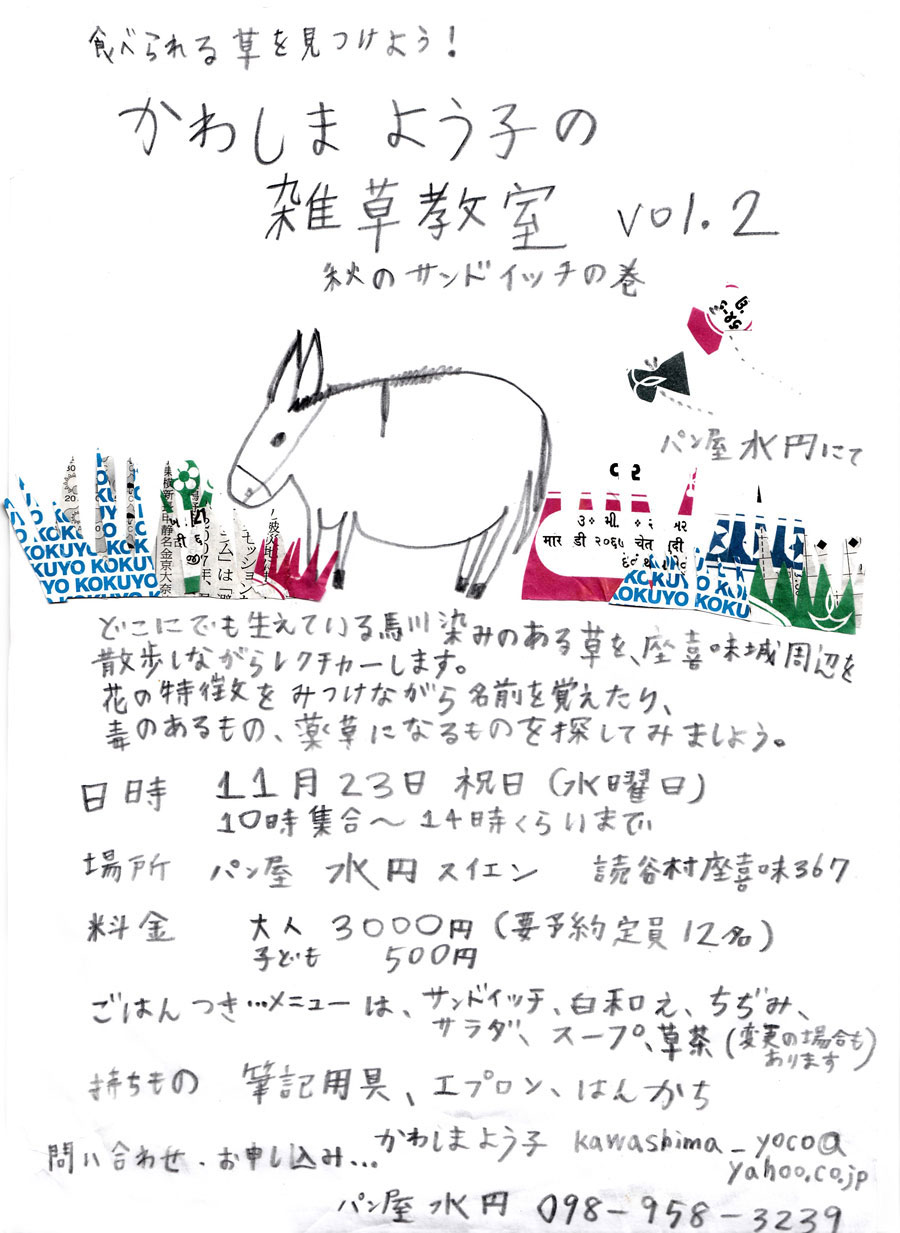 食べられる草を見つけよう!
かわしま よう子の
雑草教室 vol.2
秋のサンドイッチの巻
パン屋水円にて
KOKUYO KOKUYO
どこにでも生えている馬川染みのある草を、座喜味城周辺を
散歩しながらレクチャーします。
花の特徴文をみつけながら名前を覚えたり、
毒のあるもの、薬草になるものを探してみましょう。
日時 11月23日 祝日(水曜日)
10時集合〜14時くらいまで
場所 パン屋 水円スイエン 読谷村座喜味367
料金 大人 3000円(要予約定員12名)
子ども 500円
ごはんつき…メニューは、サンドイッチ、白和え、ちぢみ、
サラダ、スープ、草茶(変更の場合も
あります)
持ちもの 筆記用具、エプロン、はんかち
問い合わせ.お申し込み...かわしまよう子 kawashima_yoco@
yahoo.co.jp
パン屋水円 098-958-3239